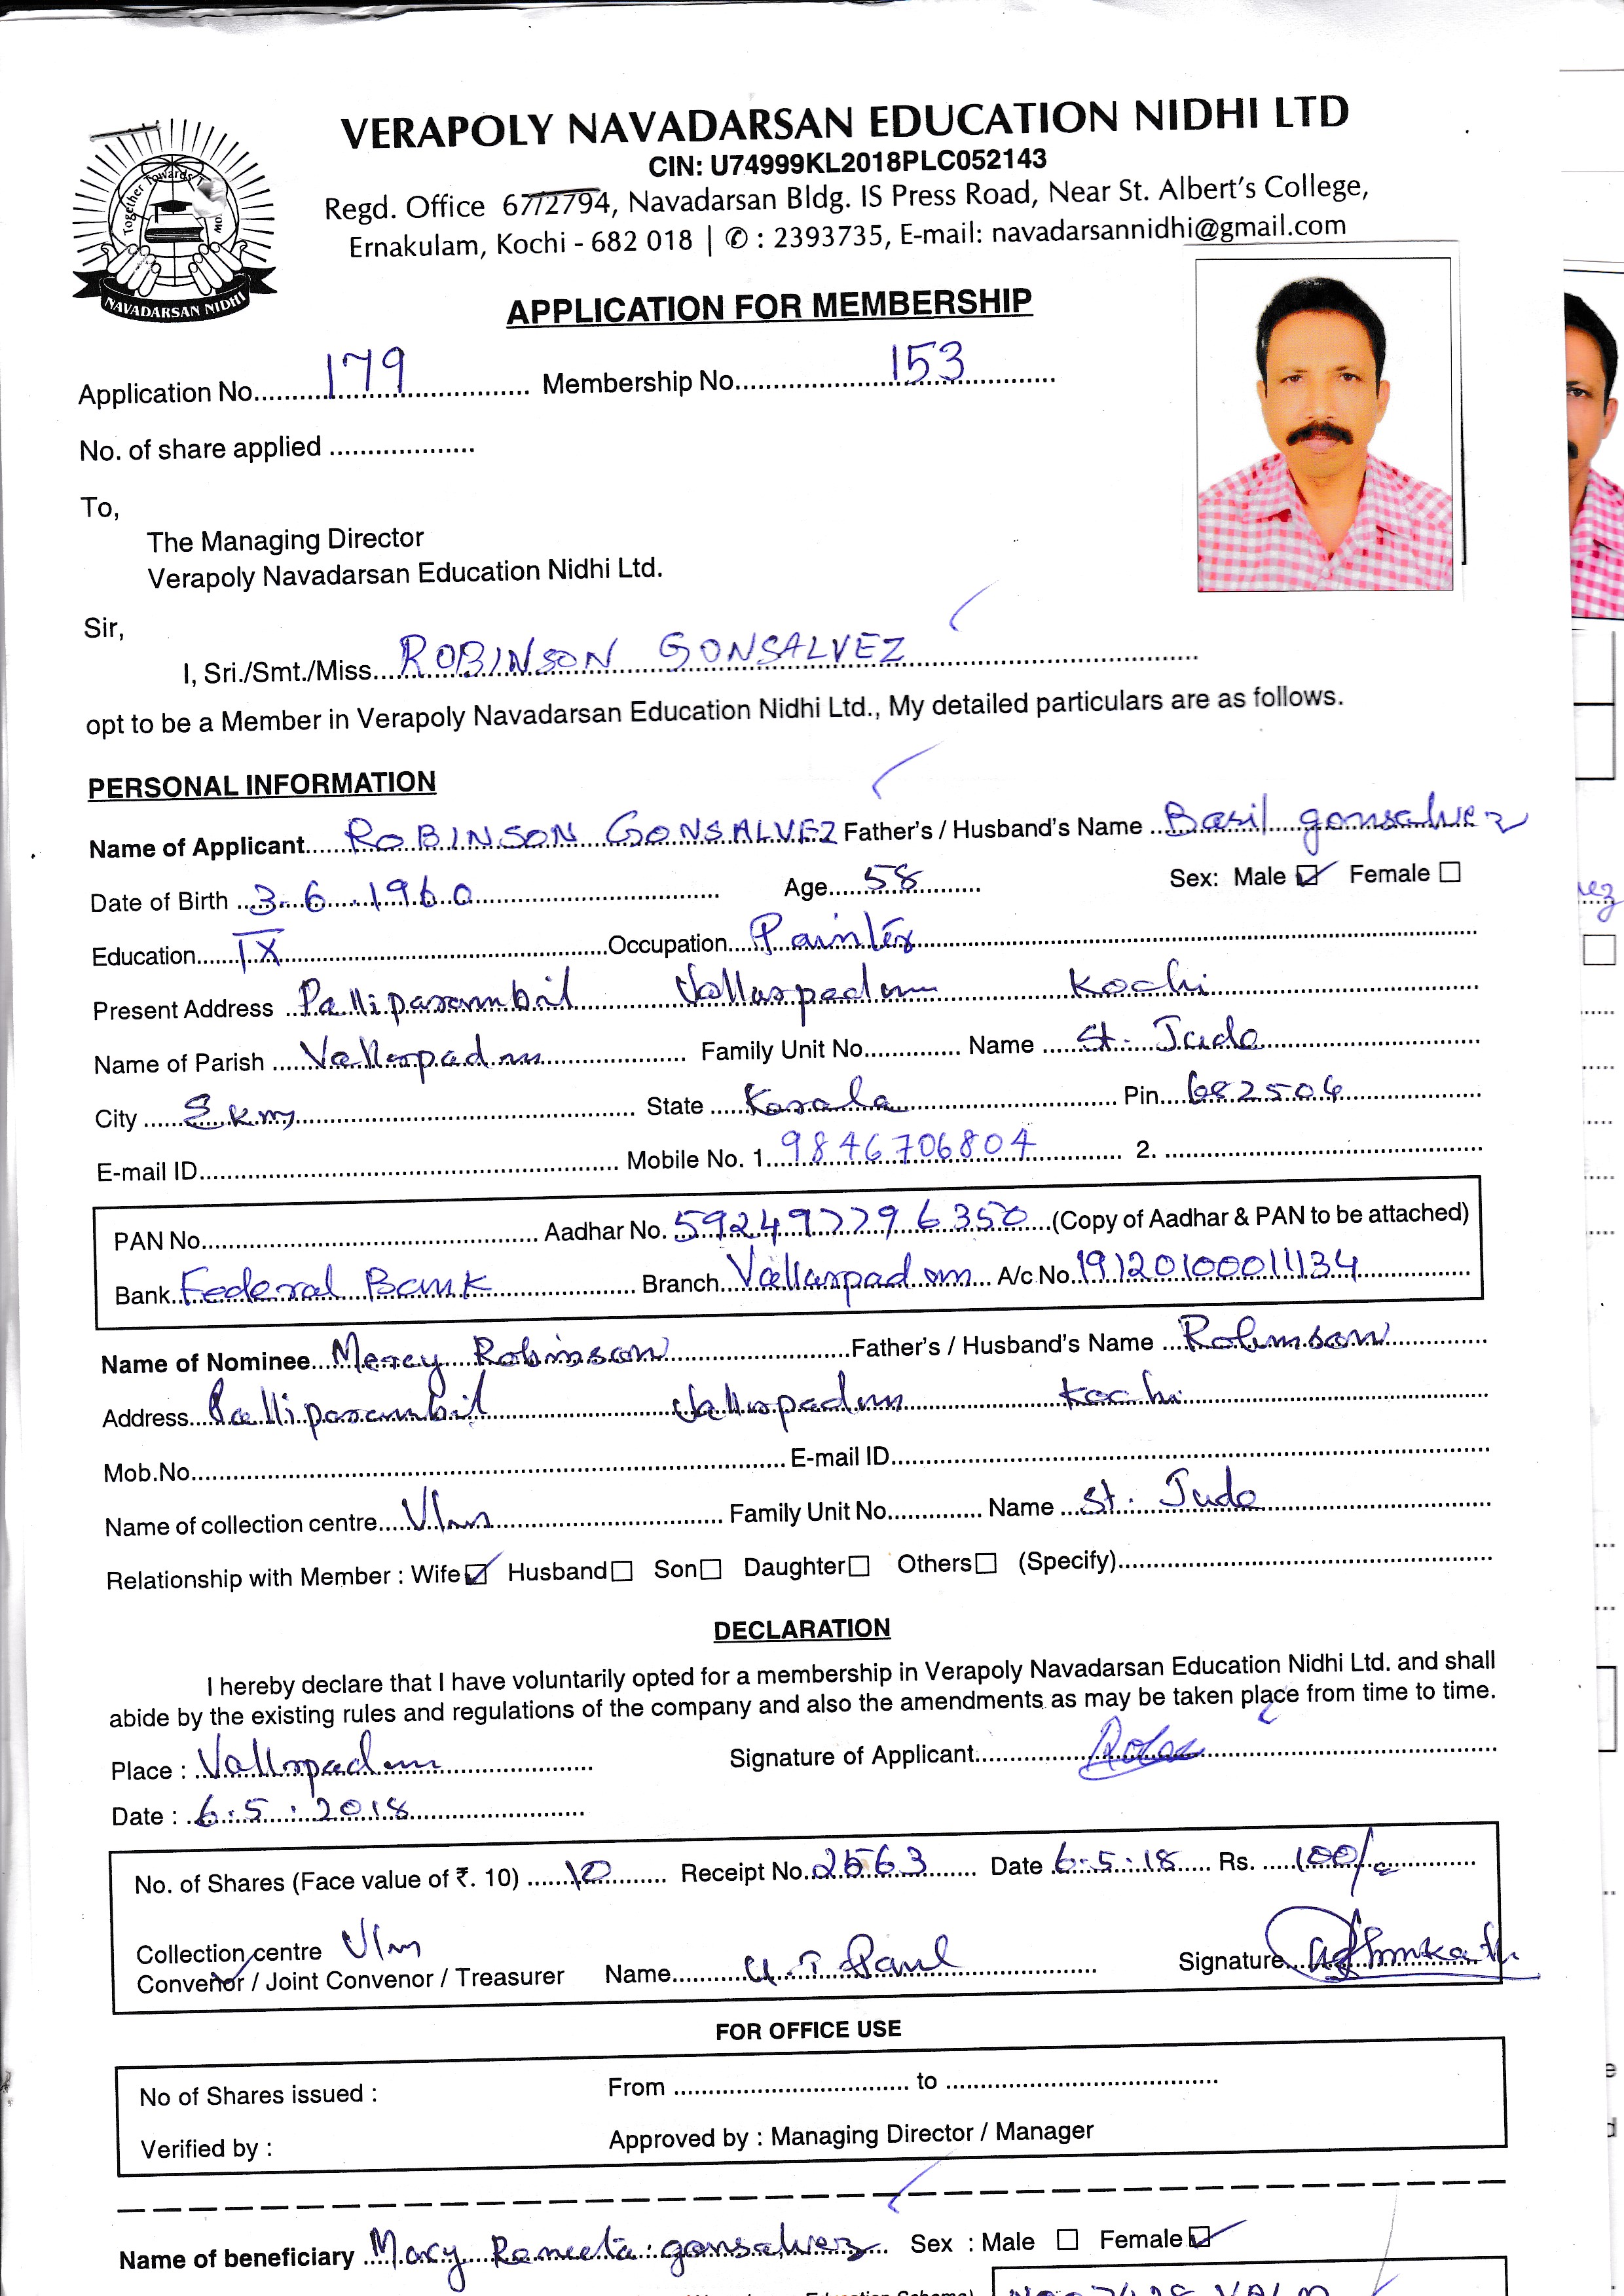 VERAPOLY NAVADARSAN EDUCATION NIDHI LTD
CIN: U74999KL2018PLC052143
Regd. Office 67/2794, Navadarsan Bldg. IS Press Road, Near St. Albert's College,
Ernakulam, Kochi - 682 018 | ✆ : 2393735, E-mail: navadarsannidhi@gmail.com
Together Towards
NAVADARSAN NIDHI
APPLICATION FOR MEMBERSHIP
Application No. 179 Membership No. 153
No. of share applied
To,
The Managing Director
Verapoly Navadarsan Education Nidhi Ltd.
Sir,
I, Sri./Smt./Miss. ROBINSON GONSALVEZ
opt to be a Member in Verapoly Navadarsan Education Nidhi Ltd., My detailed particulars are as follows.
PERSONAL INFORMATION
Name of Applicant ROBINSON GONSALVEZ Father's / Husband's Name Basil gonsalvez
Date of Birth 3-6-1960 Age 58 Sex: Male ☑ Female ☐
Education IX Occupation Painter
Present Address Palliparambil Vallarpadam Kochi
Name of Parish Vallarpadam Family Unit No. Name St. Jude
City Ekm State Kerala Pin 682504
E-mail ID Mobile No. 1. 9846706804 2.
PAN No. Aadhar No. 592497796350 (Copy of Aadhar & PAN to be attached)
Bank Federal Bank Branch Vallarpadam A/c No. 19120100011134
Name of Nominee Mercy Robinson Father's / Husband's Name Robinson
Address Palliparambil Vallarpadam Kochi
Mob.No. E-mail ID
Name of collection centre Vlm Family Unit No. Name St. Jude
Relationship with Member : Wife ☑ Husband ☐ Son ☐ Daughter ☐ Others ☐ (Specify)
DECLARATION
I hereby declare that I have voluntarily opted for a membership in Verapoly Navadarsan Education Nidhi Ltd. and shall
abide by the existing rules and regulations of the company and also the amendments as may be taken place from time to time.
Place : Vallarpadam Signature of Applicant
Date : 6.5.2018
No. of Shares (Face value of ₹. 10) 10 Receipt No. 2563 Date 6.5.18 Rs. 100/-
Collection centre Vlm
Convenor / Joint Convenor / Treasurer Name U.T Paul Signature
FOR OFFICE USE
No of Shares issued : From to
Verified by : Approved by : Managing Director / Manager
Name of beneficiary Mary Raneeta gonsalvez Sex : Male ☐ Female ☑